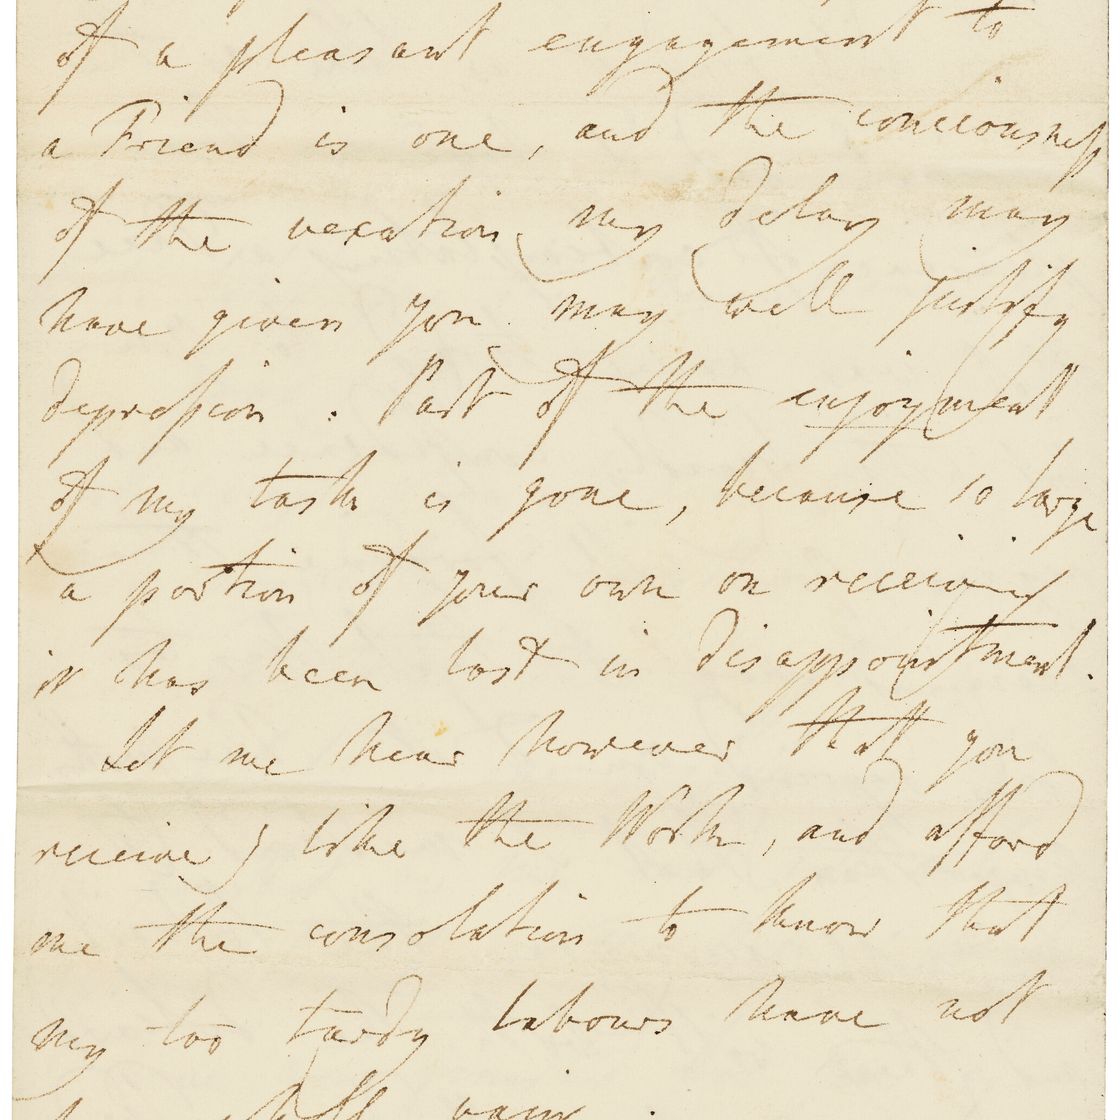 of a pleasant engagement to
a Friend is one, and the conciousness
of the vexation my delay may
have given you may well justify
depression. Part of the enjoyment
of my task is gone, because so large
a portion of your own on receiving
it has been lost in disappointment.
Let me hear however that you
receive & like the Work, and afford
me the consolation to know that
my too tardy labours have not
vain.